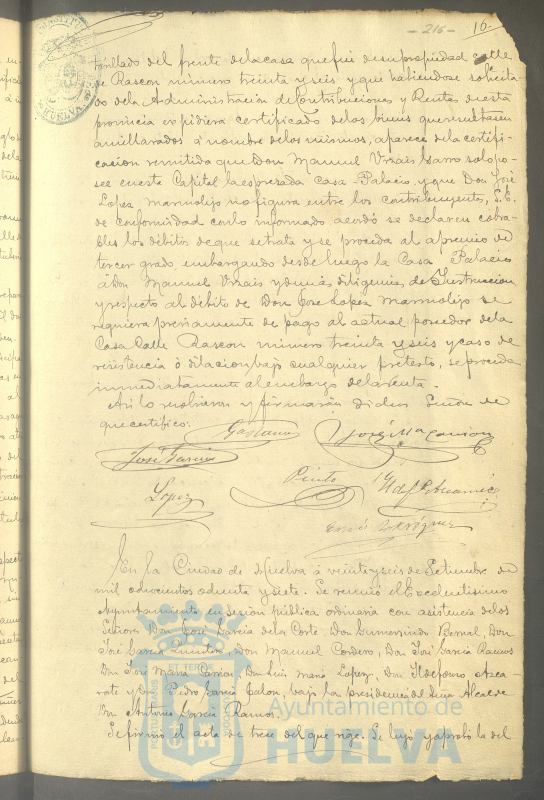 - 216 -
16.
tanillado del frente dela casa que fué desu propiedad calle
de Rascon número treinta y seis y que habiendose solicita
do dela Administracion de Contribuciones y Rentas de esta
provincia expidiera certificado delos bienes que resultasen
amillarados á nombre delos mismos, aparece dela certifi-
cacion remitida que Don Manuel solo po-
see en esta Capital la espresada casa-Palacio, y que Don José
Lopez Mannolijo no figura entre los contribuyentes, S.E.
de conformidad con lo informado acordó se declaren cobra-
bles los débitos de que se trata y se proceda al apremio de
tercer grado embargando desde luego la Casa Palacio
á Don Manuel y demás diligencias de Instruccion
y respecto al débito de Don José Lopez Mannolijo se
requiera previamente de pago al actual poseedor dela
Casa Calle Rascon número treinta y seis y caso de
resistencia ó dilacion bajo cualquier pretesto, se proceda
inmediatamente al embargo dela renta.
Asi lo resolvieron y firmarán dichos Señores de
que certifico.
José García
Lopez
Pinto
En la Ciudad de Huelva á veinte y seis de Setiembre de
mil ochocientos ochenta y siete. Se reunió el Excelentisimo
Ayuntamiento en sesion pública ordinaria con asistencia delos
Señores Don José García dela Corte, Don Gumersindo Bernal, Don
José García Quintero, Don Manuel Cordero, Don José García Ramos
Don José María Don Luis María Lopez, Don Ildefonso Azca-
rate y Don Pedro García Jalon, bajo la presidencia del Señor Alcalde
Don Antonio García Ramos.
Se firmó el acta de trece del que rige. Se leyó y aprobó la del
Ayuntamiento de
HUELVA